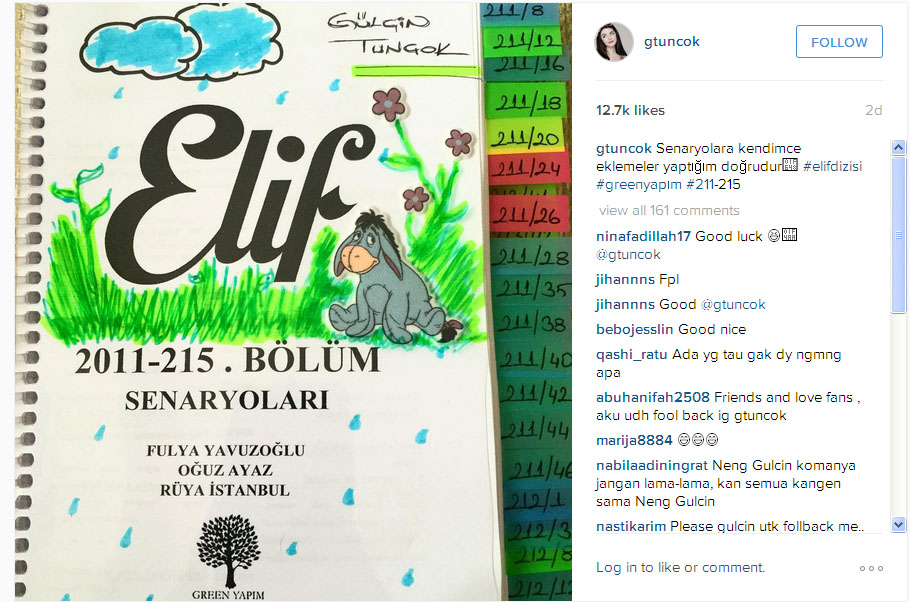 GÜLGİN
TUNGOK
Elif
2011-215 . BÖLÜM
SENARYOLARI
FULYA YAVUZOĞLU
OĞUZ AYAZ
RÜYA İSTANBUL
GREEN YAPIM
211/8
211/12
211/16
211/18
211/20
211/24
211/26
211/28
211/35
211/38
211/40
211/42
211/44
211/46
212/1
212/3
212/8
212/12
gtuncok
FOLLOW
12.7k likes
2d
gtuncok Senaryolara kendimce
eklemeler yaptığım doğrudur #elifdizisi
#greenyapım #211-215
view all 161 comments
ninafadillah17 Good luck 😆
@gtuncok
jihannns Fpl
jihannns Good @gtuncok
bebojesslin Good nice
qashi_ratu Ada yg tau gak dy ngmng
apa
abuhanifah2508 Friends and love fans ,
aku udh fool back ig gtuncok
marija8884 😄😄😄
nabilaadiningrat Neng Gulcin komanya
jangan lama-lama, kan semua kangen
sama Neng Gulcin
nastikarim Please gulcin utk follback me..
Log in to like or comment.